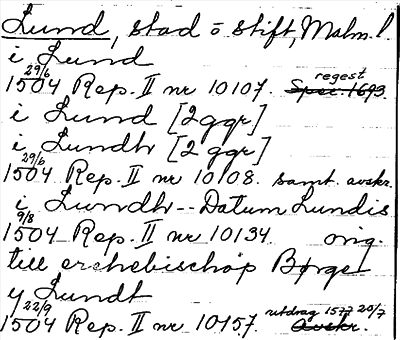 Lund, stad o stift, Malm. l.
i Lund
29/6 1504 Rep. II nr 10107. regest Spec. 1693
i Lund [2 ggr]
i Lundh [2 ggr]
29/6 1504 Rep. II nr 10108. samt. avskr.
i Lundh -- Datum Lundis
9/8 1504 Rep. II nr 10134. orig.
till erchebischop Børge
y Lundt
22/9 1504 Rep. II nr 10157. utdrag 1577 20/7 Avskr.